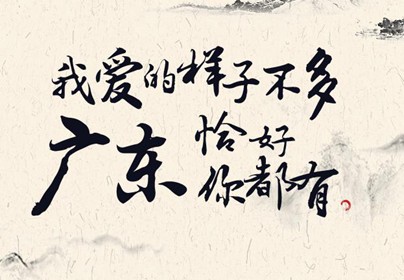 我爱的样子不多
广东恰好
你都有